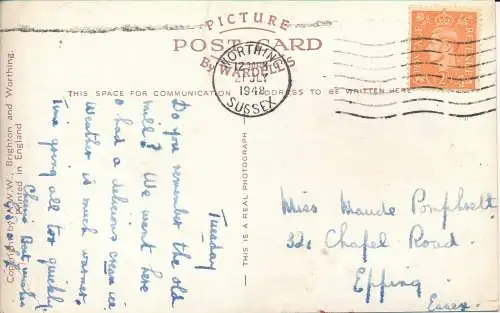 PICTURE
POST CARD
By WARDELLS
THIS SPACE FOR COMMUNICATION
ADDRESS TO BE WRITTEN HERE
WORTHING
1948
SUSSEX
Copyright by W.W., Brighton and Worthing.
Printed in England
THIS IS A REAL PHOTOGRAPH
Tuesday
Do you remember the old
mill? We went here
& had a delicious cream ice.
Weather is much warmer.
Time going all too quickly.
Best wishes
Miss Maude
32, Chapel Road.
Epping.
Essex.